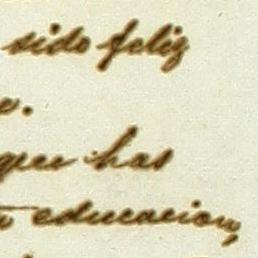 sido feliz
que has
educacion,